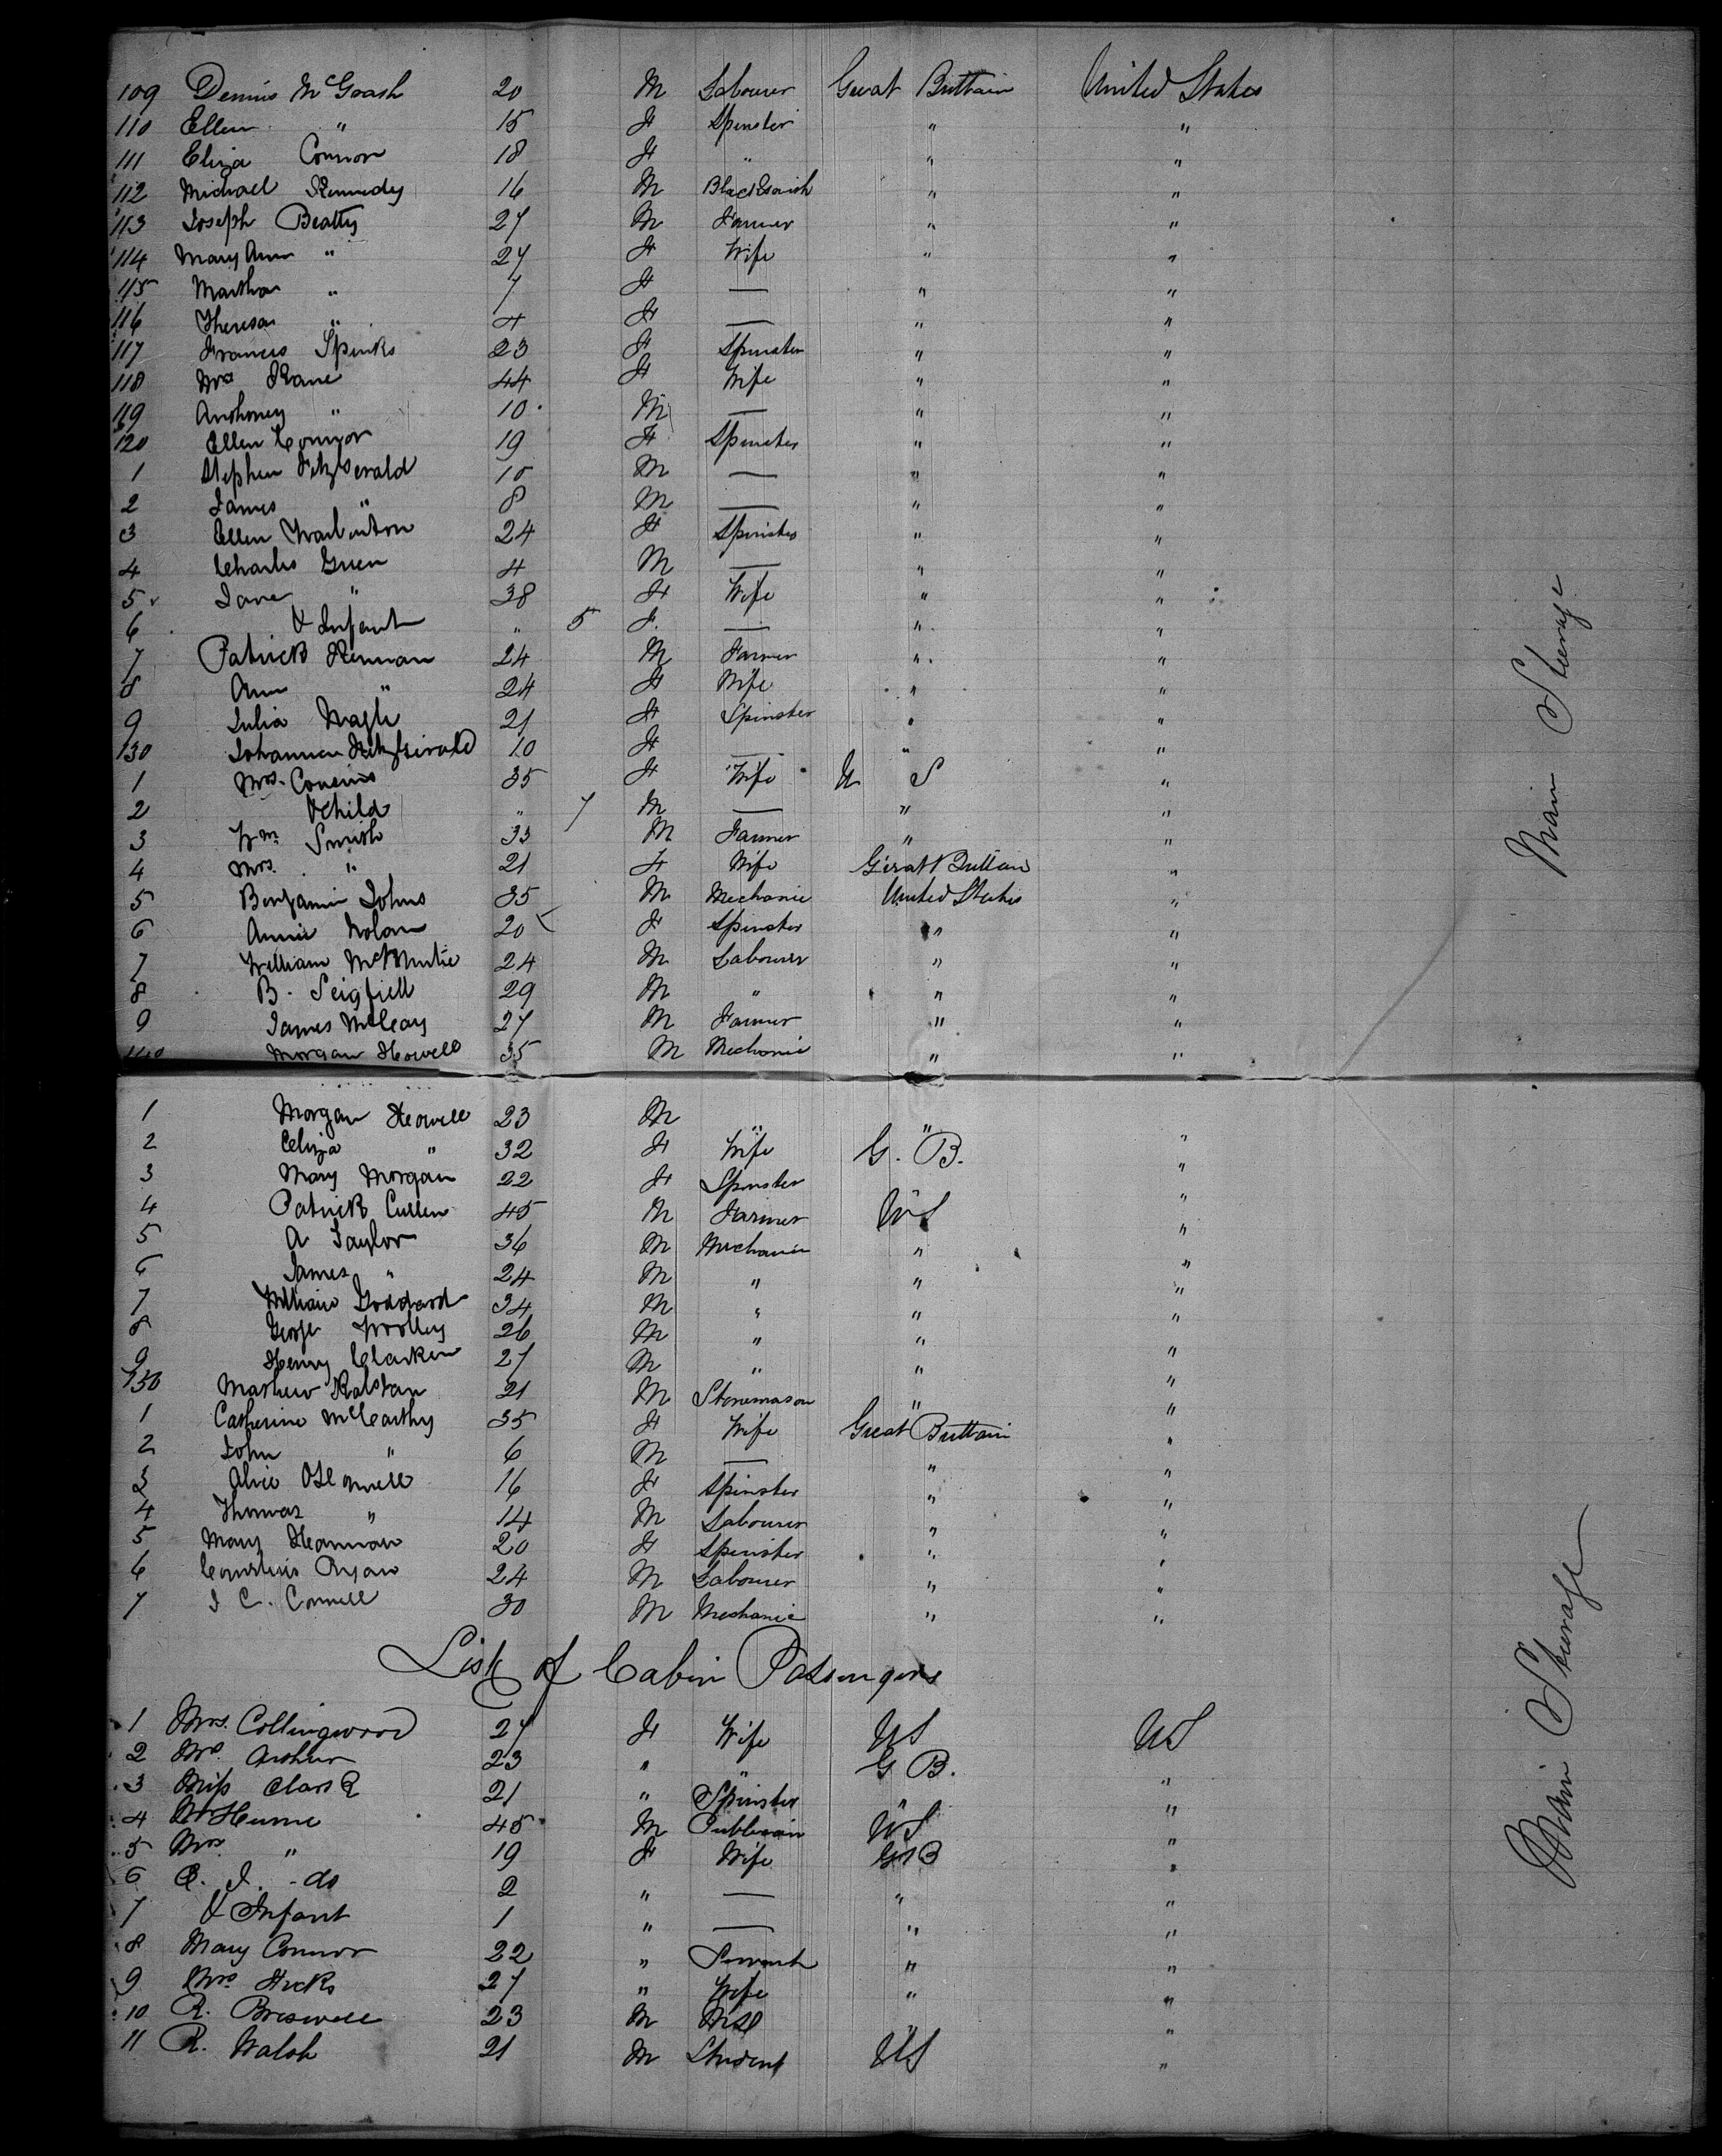 109 Dennis McGrash 20 M Labourer Great Brittain United States
110 Ellen " 15 F Spinster " "
111 Eliza Connor 18 F " " "
112 Michael Kennedy 16 M Blacksmith " "
113 Joseph Beatty 27 M Farmer " "
114 Mary Ann " 27 F Wife " "
115 Martha " 7 F — " "
116 Theresa " 4 F — " "
117 Frances Spinks 23 F Spinster " "
118 Mrs Kane 44 F Wife " "
119 Anthoney " 10 M — " "
120 Ellen Connor 19 F Spinster " "
1 Stephen FitzGerald 10 M — " "
2 James " 8 M — " "
3 Ellen Warburton 24 F Spinster " "
4 Charles Green 4 M — " "
5 Jane " 38 F Wife " "
6 & Infant " 5 F. — " "
7 Patrick Kennan 24 M Farmer " "
8 Ann " 24 F Wife " "
9 Julia Nagle 21 F Spinster " "
130 Johannah FitzGerald 10 F — " "
1 Mrs. Cousins 35 F Wife U S "
2 & Child " 7 M — " "
3 Wm Smith 33 M Farmer " "
4 Mrs. " 21 F Wife Great Brittan "
5 Benjamin Johns 35 M Mechanic United States "
6 Annie Nolan 20 F Spinster " "
7 William McMurtie 24 M Labourer " "
8 B. Seigfiell 29 M " " "
9 James McCleary 27 M Farmer " "
140 Morgan Howell 35 M Mechanic " "
1 Morgan Howell 23 M " " "
2 Eliza " 32 F Wife G. B. "
3 Mary Morgan 22 F Spinster "
4 Patrick Cullen 45 M Farmer US "
5 A Taylor 36 M Mechanic " "
6 James " 24 M " " "
7 William Goddard 34 M " " "
8 George Woolley 26 M " " "
9 Henry Clarken 27 M " " "
150 Mathew Ralstan 21 M Stonemason " "
1 Catherine McCarthy 35 F Wife Great Brittain "
2 John " 6 M — " "
3 Alice O'Connell 16 F Spinster " "
4 Thomas " 14 M Labourer " "
5 Mary Hannan 20 F Spinster " "
6 Cornelius Ryan 24 M Labourer " "
7 J C. Connell 30 M Mechanic " "
Main Steerage
List of Cabin Passengers
1 Mrs. Collingwood 27 F Wife US US
2 Mrs. Arthur 23 " " G B. "
3 Miss Clark 21 " Spinster " "
4 Mr Hume 45 M Publican US "
5 Mrs " 19 F Wife GB "
6 C. J. - do 2 " — " "
7 & Infant 1 " — " "
8 Mary Connor 22 " Servant " "
9 Mrs Hicks 27 " Wife " "
10 R. Breswell 23 M " "
11 R. Walsh 21 M Student US "
Main Steerage